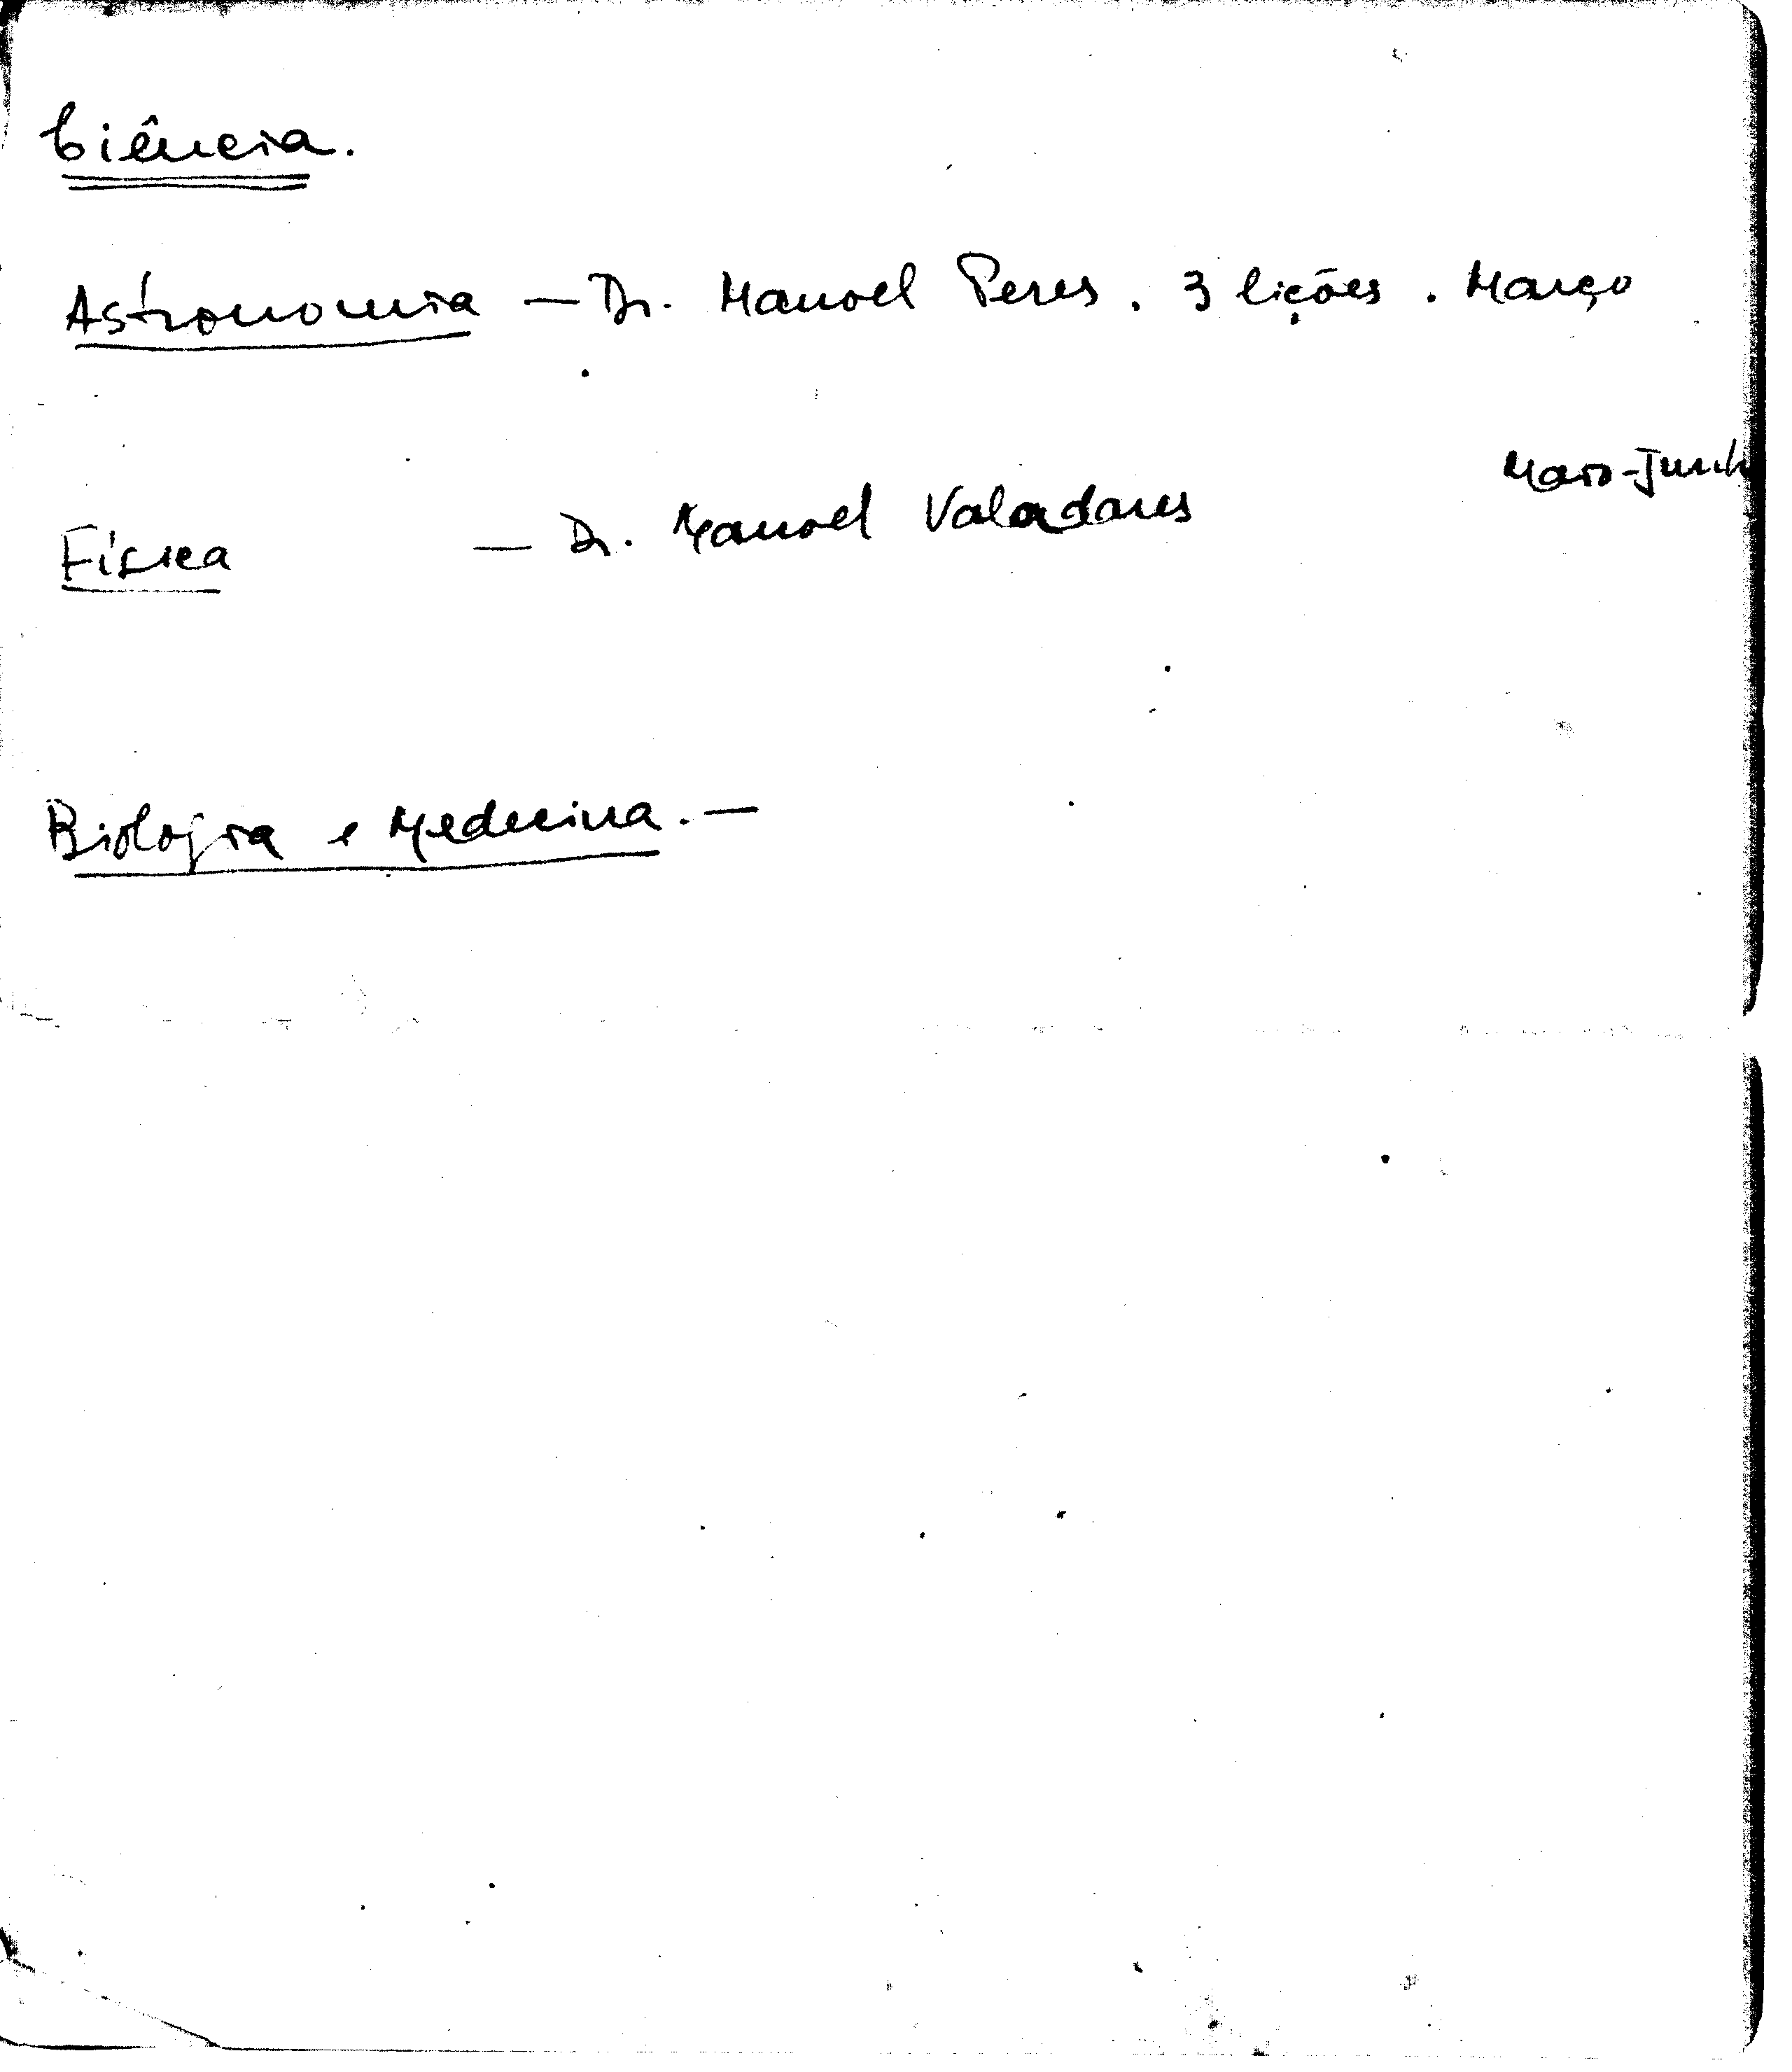 Ciência.
Astronomia — Dr. Manoel Peres. 3 lições. Março
Maio-Junh
Física — Dr. Manoel Valadares
Biologia e Medecina. —